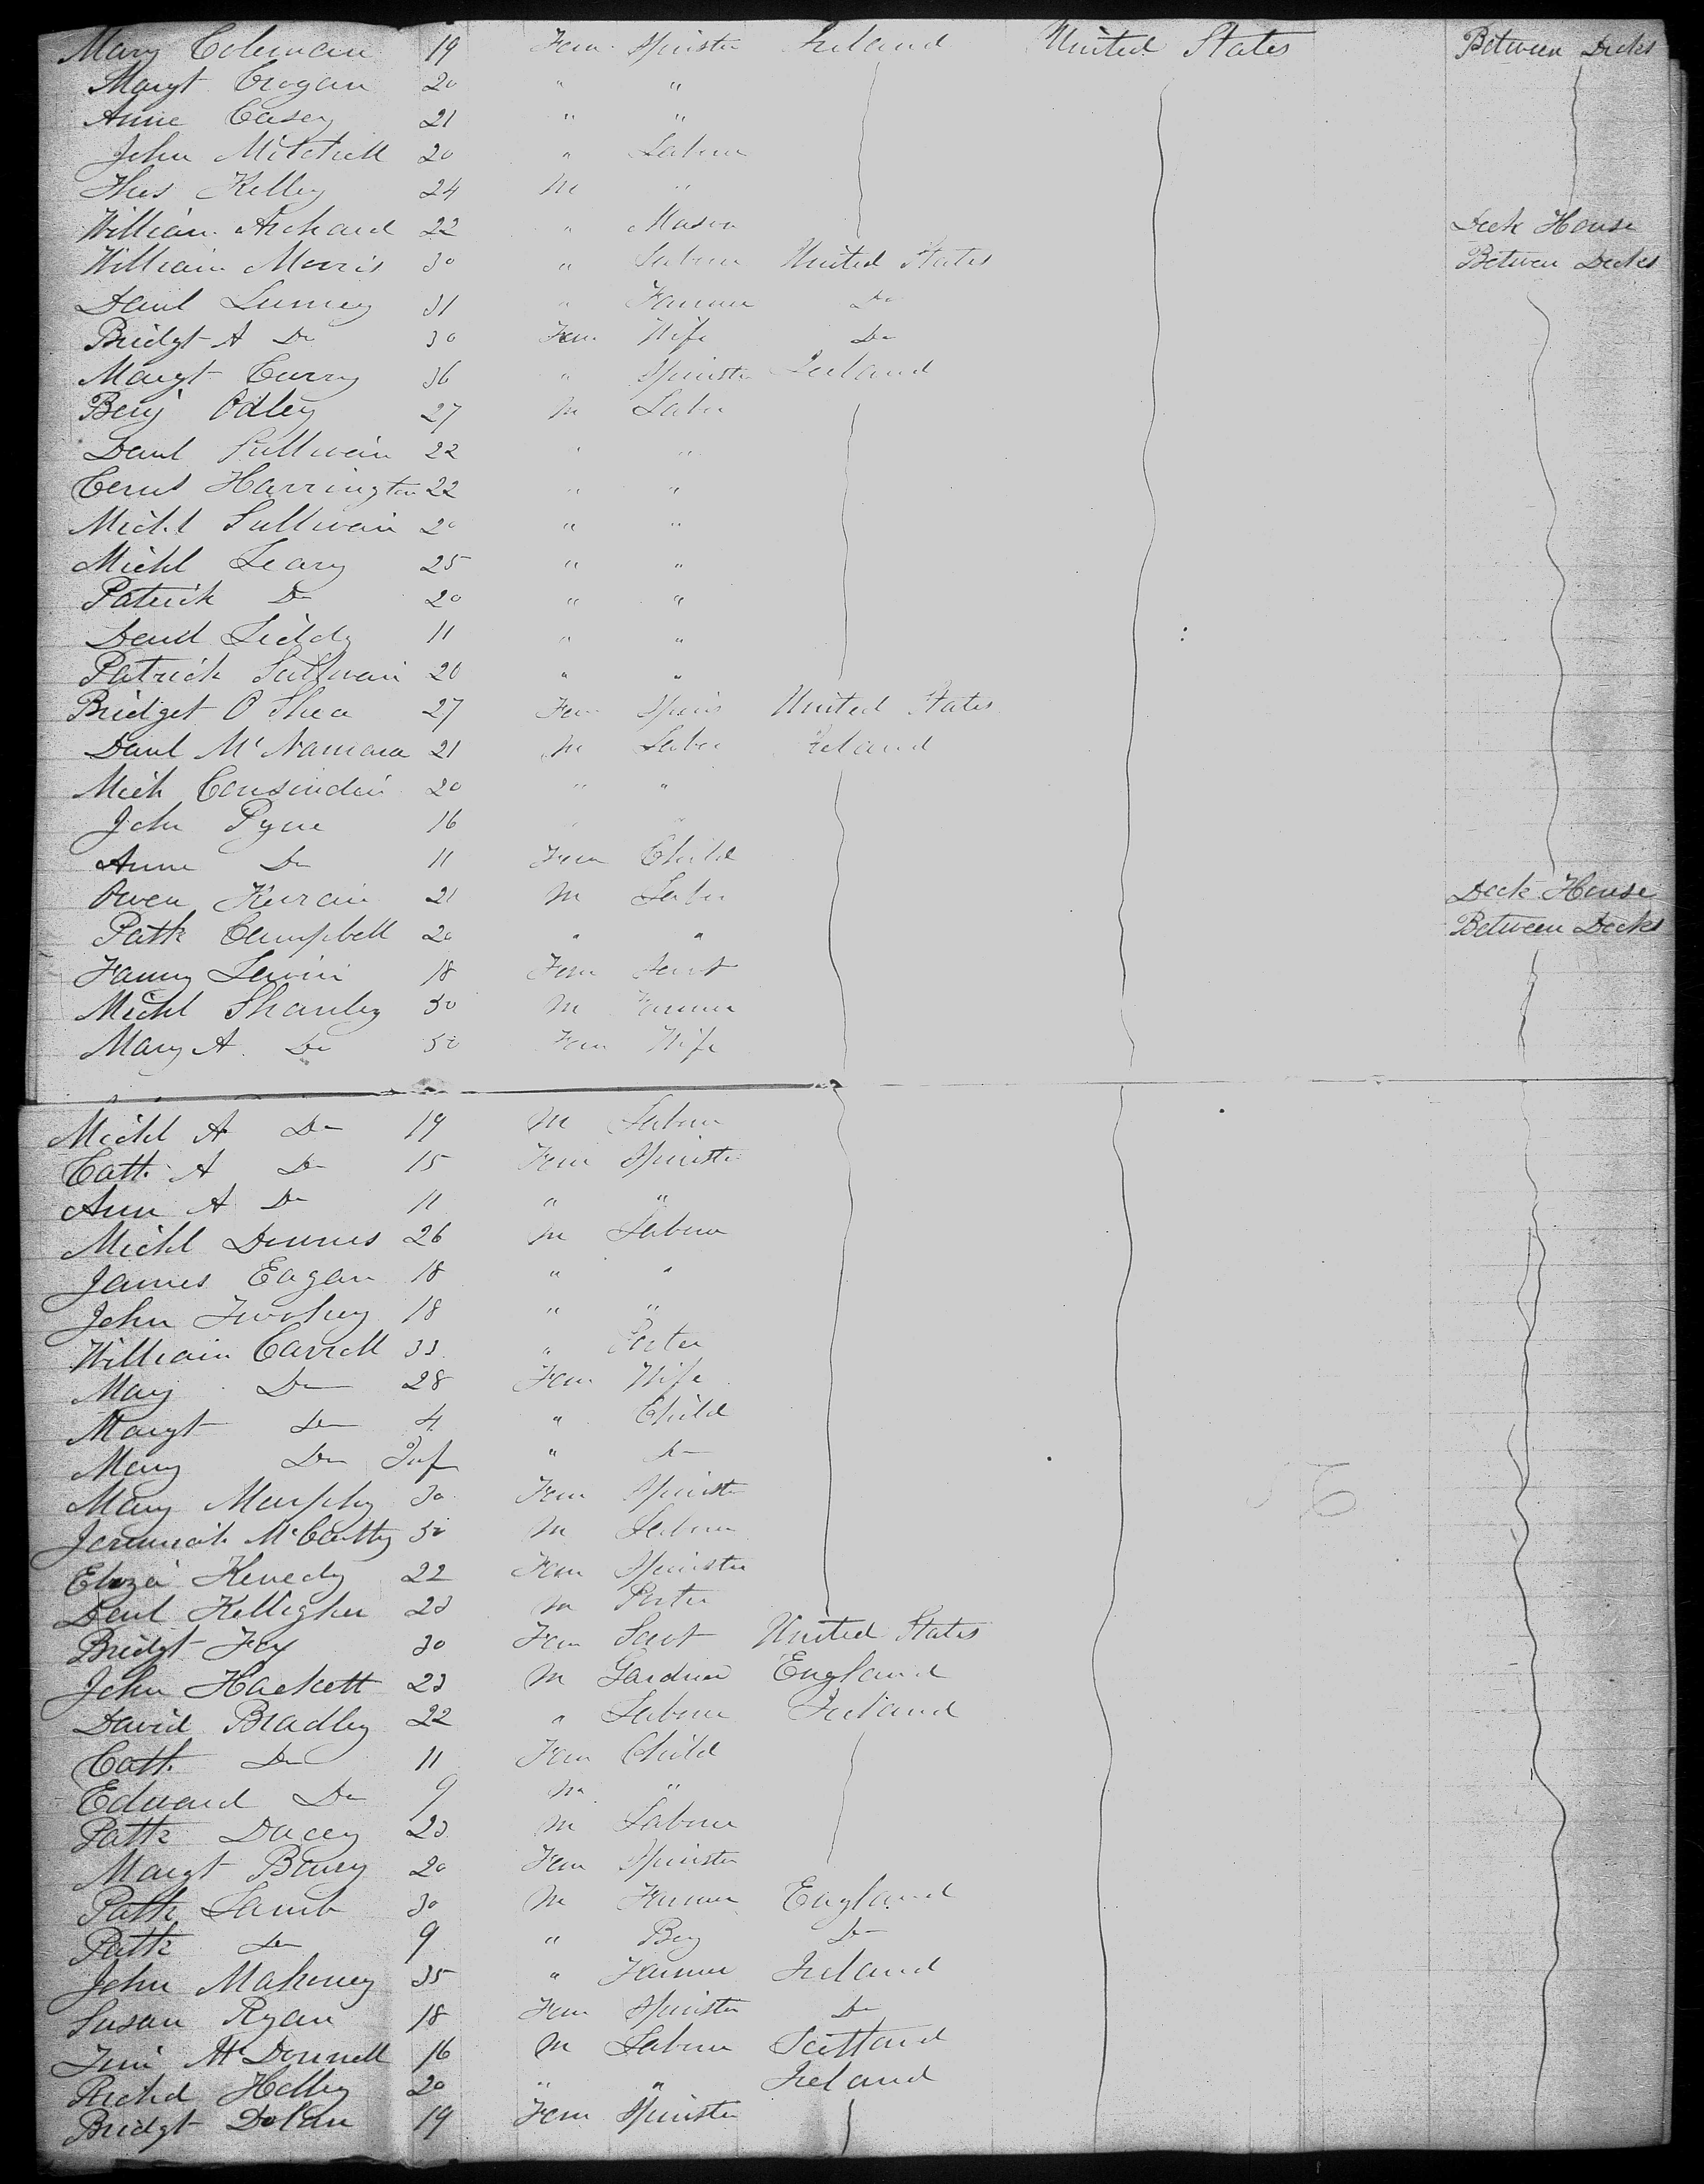 Mary Coleman 19 Fem Spinster Ireland United States Between Decks
Margt Crogan 20 " "
Anne Casey 21 " "
John Mitchell 20 " Labour
Thos Kelley 24 M "
William Archard 22 " Mason Deck House
William Morris 30 " Labour United States Between Decks
Danl Lumey 31 " Farmer Do
Bridgt A Do 30 Fem Wife Do
Margt Curry 36 " Spinster Ireland
Benj Odley 27 M Labr
Danl Sullivan 22 " "
Corns Harrington 22 " "
Michl Sullivan 20 " "
Michl Leary 25 " "
Patrick Do 20 " "
Danl Liddy 11 " "
Patrick Sullivan 20 " "
Bridget O Shea 27 Fem Spins United States
Danl McNamara 21 M Labr Ireland
Mich Consindin 20 " "
John Pyne 16
Anne Do 11 Fem Child
Owen Kieran 21 M Labr Deck House
Patk Campbell 20 " " Between Decks
Fanny Lavin 18 Fem Servt
Michl Shanley 50 M Farmer
Mary A Do 50 Fem Wife
Michl A Do 19 M Labour
Cath A Do 15 Fem Spinster
Ann A Do 11 " "
Michl Downes 26 M Labour
James Eagan 18 " "
John Twohey 18 " "
William Carroll 33 " Porter
Mary Do 28 Fem Wife
Margt Do 4 " Child
Mary Do Inf " Do
Mary Murphy 30 Fem Spinster
Jeremiah McCarthy 50 M Labour
Eliza Kenedy 22 Fem Spinster
Danl Kelligher 23 M Porter
Bridgt Foy 30 Fem Servt United States
John Hackett 23 M Gardner England
David Bradley 22 " Labour Ireland
Cath Do 11 Fem Child
Edward Do 9 M "
Patk Dacey 23 M Labour
Margt Barry 20 Fem Spinster
Patk Lamb 30 M Farmer England
Patk Do 9 " Boy Do
John Mahoney 35 " Farmer Ireland
Susan Ryan 18 Fem Spinster Do
Jim McDonnell 16 M Labour Scotland
Richd Holley 20 " " Ireland
Bridgt Dolan 19 Fem Spinster